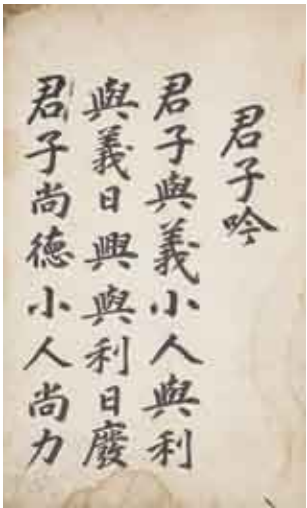 君子吟
君子與義小人與利
與義日興與利日廢
君子尚德小人尚力